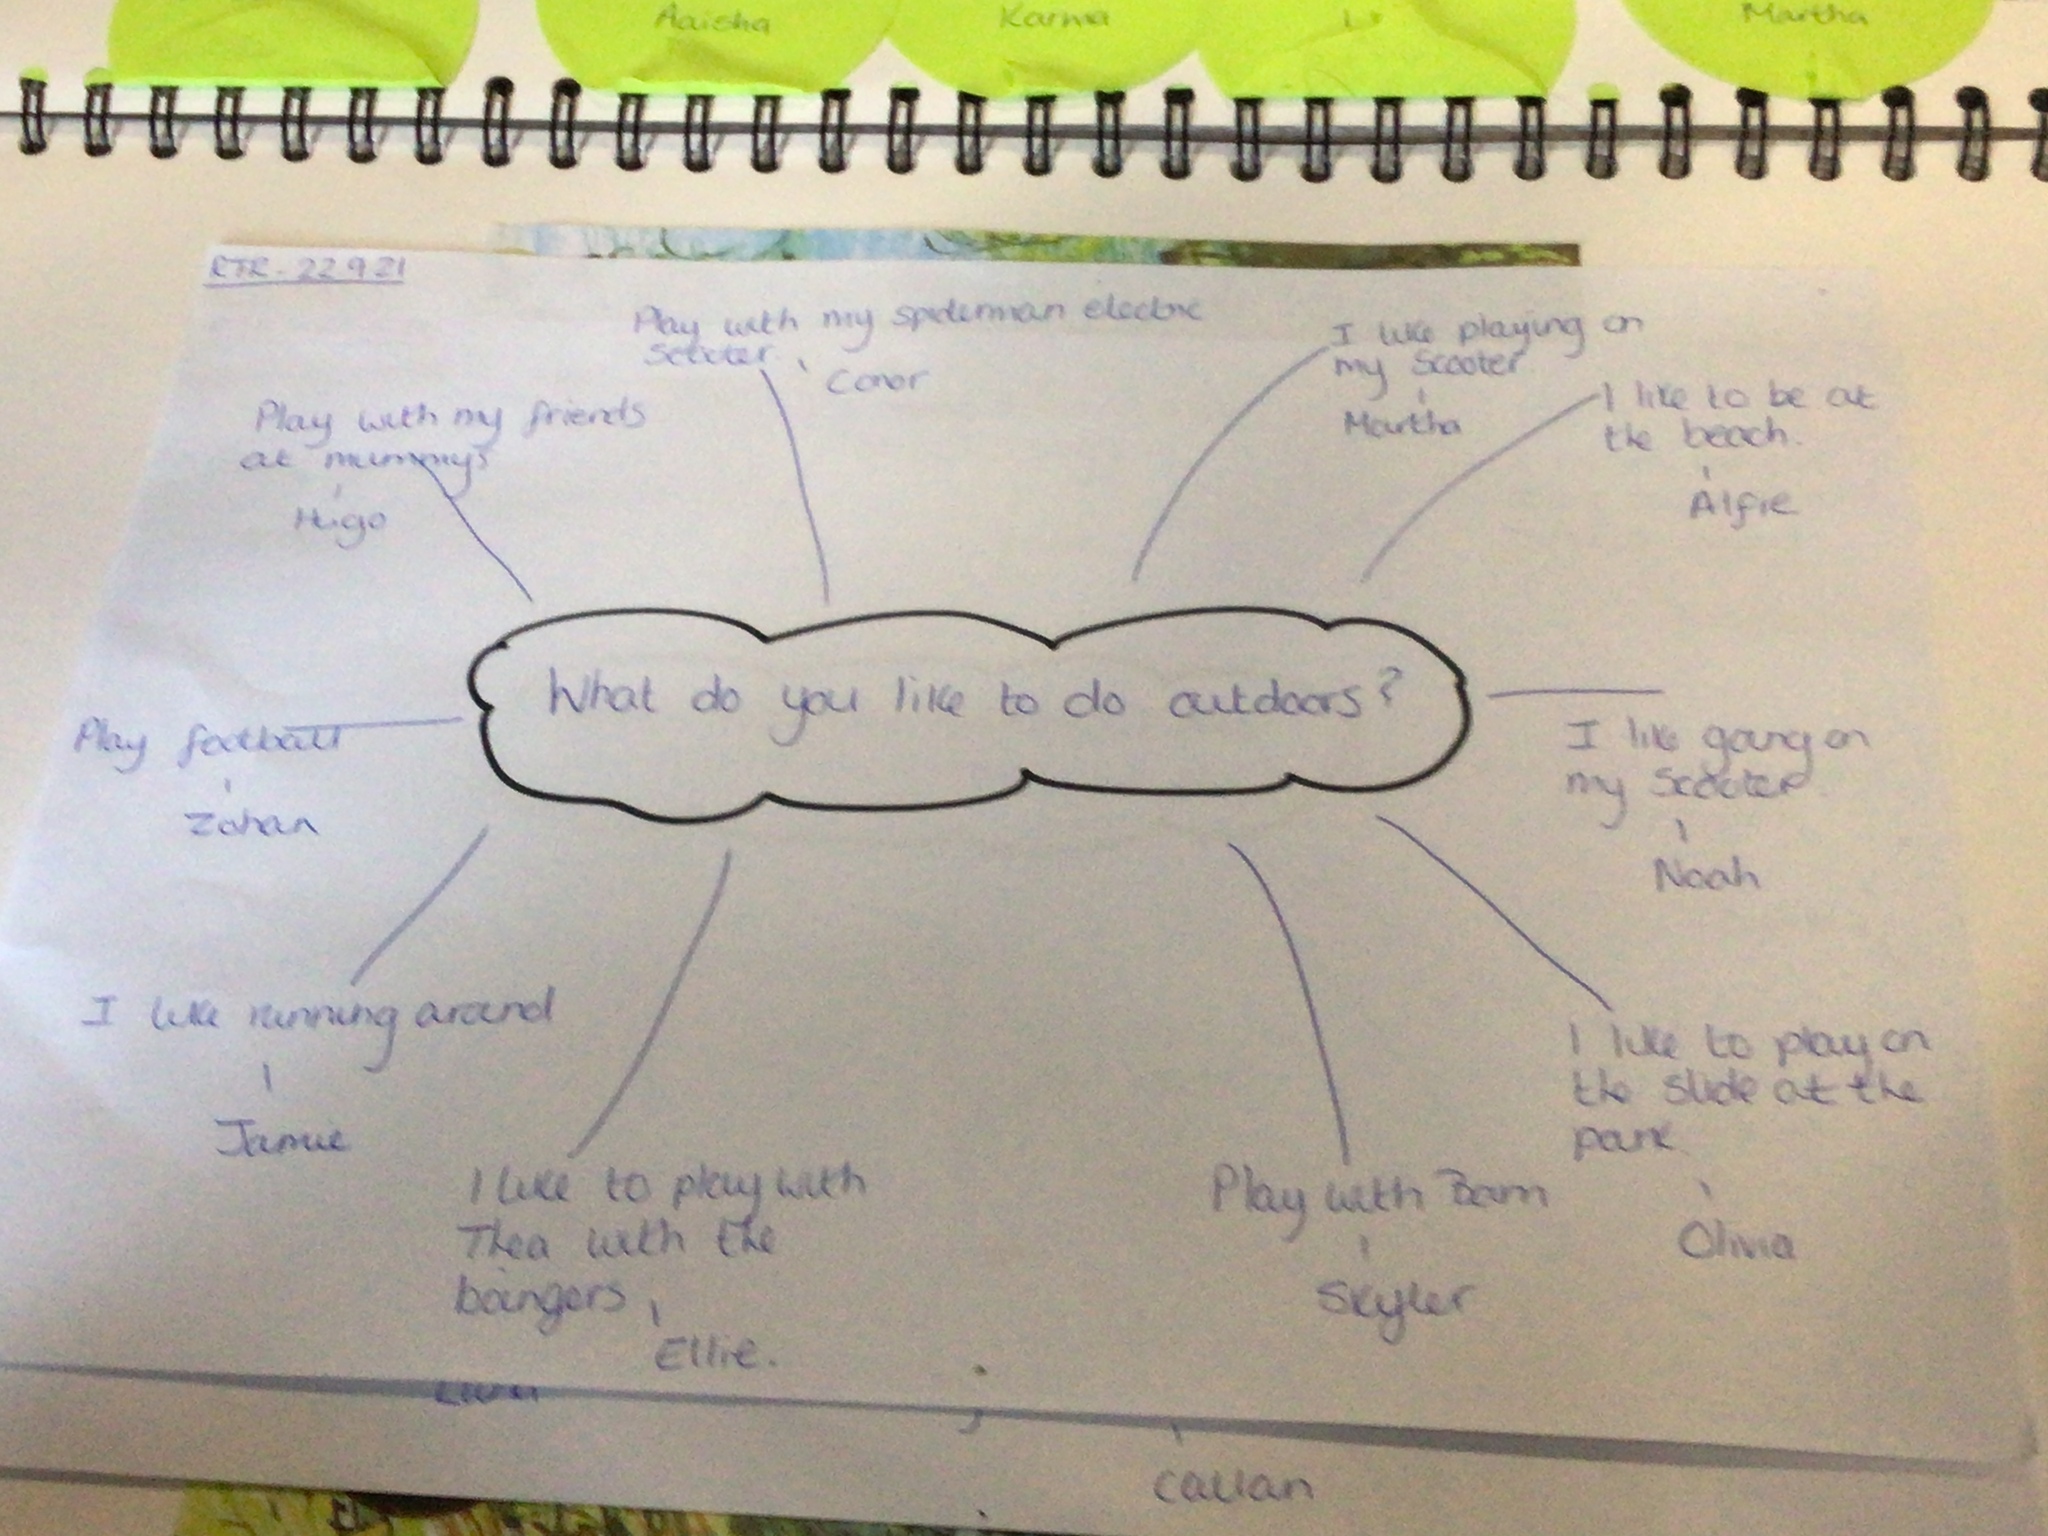 Aaisha
Karma
Martha
RTR - 22.9.21
Play with my spiderman electric
Scooter.
Conor
I like playing on
my Scooter
Martha
I like to be at
the beach.
Alfie
Play with my friends
at mummys
Hugo
What do you like to do outdoors?
Play football
Zohan
I like going on
my Scooter.
Noah
I like running around
Jamie
I like to play on
the slide at the
park
Olivia
I like to play with
Thea with the
bangers
Ellie.
Play with
Skyler
Callan